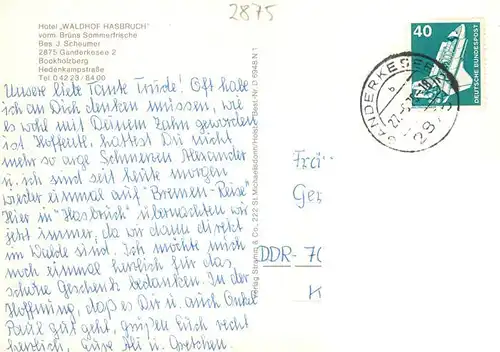 2875
Hotel „WALDHOF HASBRUCH"
vorm. Brüns Sommerfrische
Bes. J. Scheumer
2875 Ganderkesee 2
Bookholzberg
Hedenkampstraße
Tel. 0 42 23 / 84 00
Unsere liebe Tante Trude! Oft habe
ich an Dich denken müssen, wie
es wohl mit Deinem Zahn geworden
ist. Hoffentl. hattest Du nicht
mehr so arge Schmerzen. Alexander
u. ich sind seit heute morgen
wieder einmal auf "Bremen-Reise"
Hier in "Hasbruch" übernachten wir
jetzt immer, da wir dann direkt
im Walde sind. Ich möchte mich
noch einmal herzlich für das
schöne Geschenk bedanken. In der
Hoffnung, daß es Dir u. auch Onkel
Paul gut geht, grüßen Euch recht
herzlich, Eure Ali u. Gretchen.
Verlag Stramm & Co., 222 St. Michaelisdonn/Holst. Best.-Nr. D 6948 N 1
40
DEUTSCHE BUNDESPOST
GANDERKESEE
287
Ger
DDR- 70